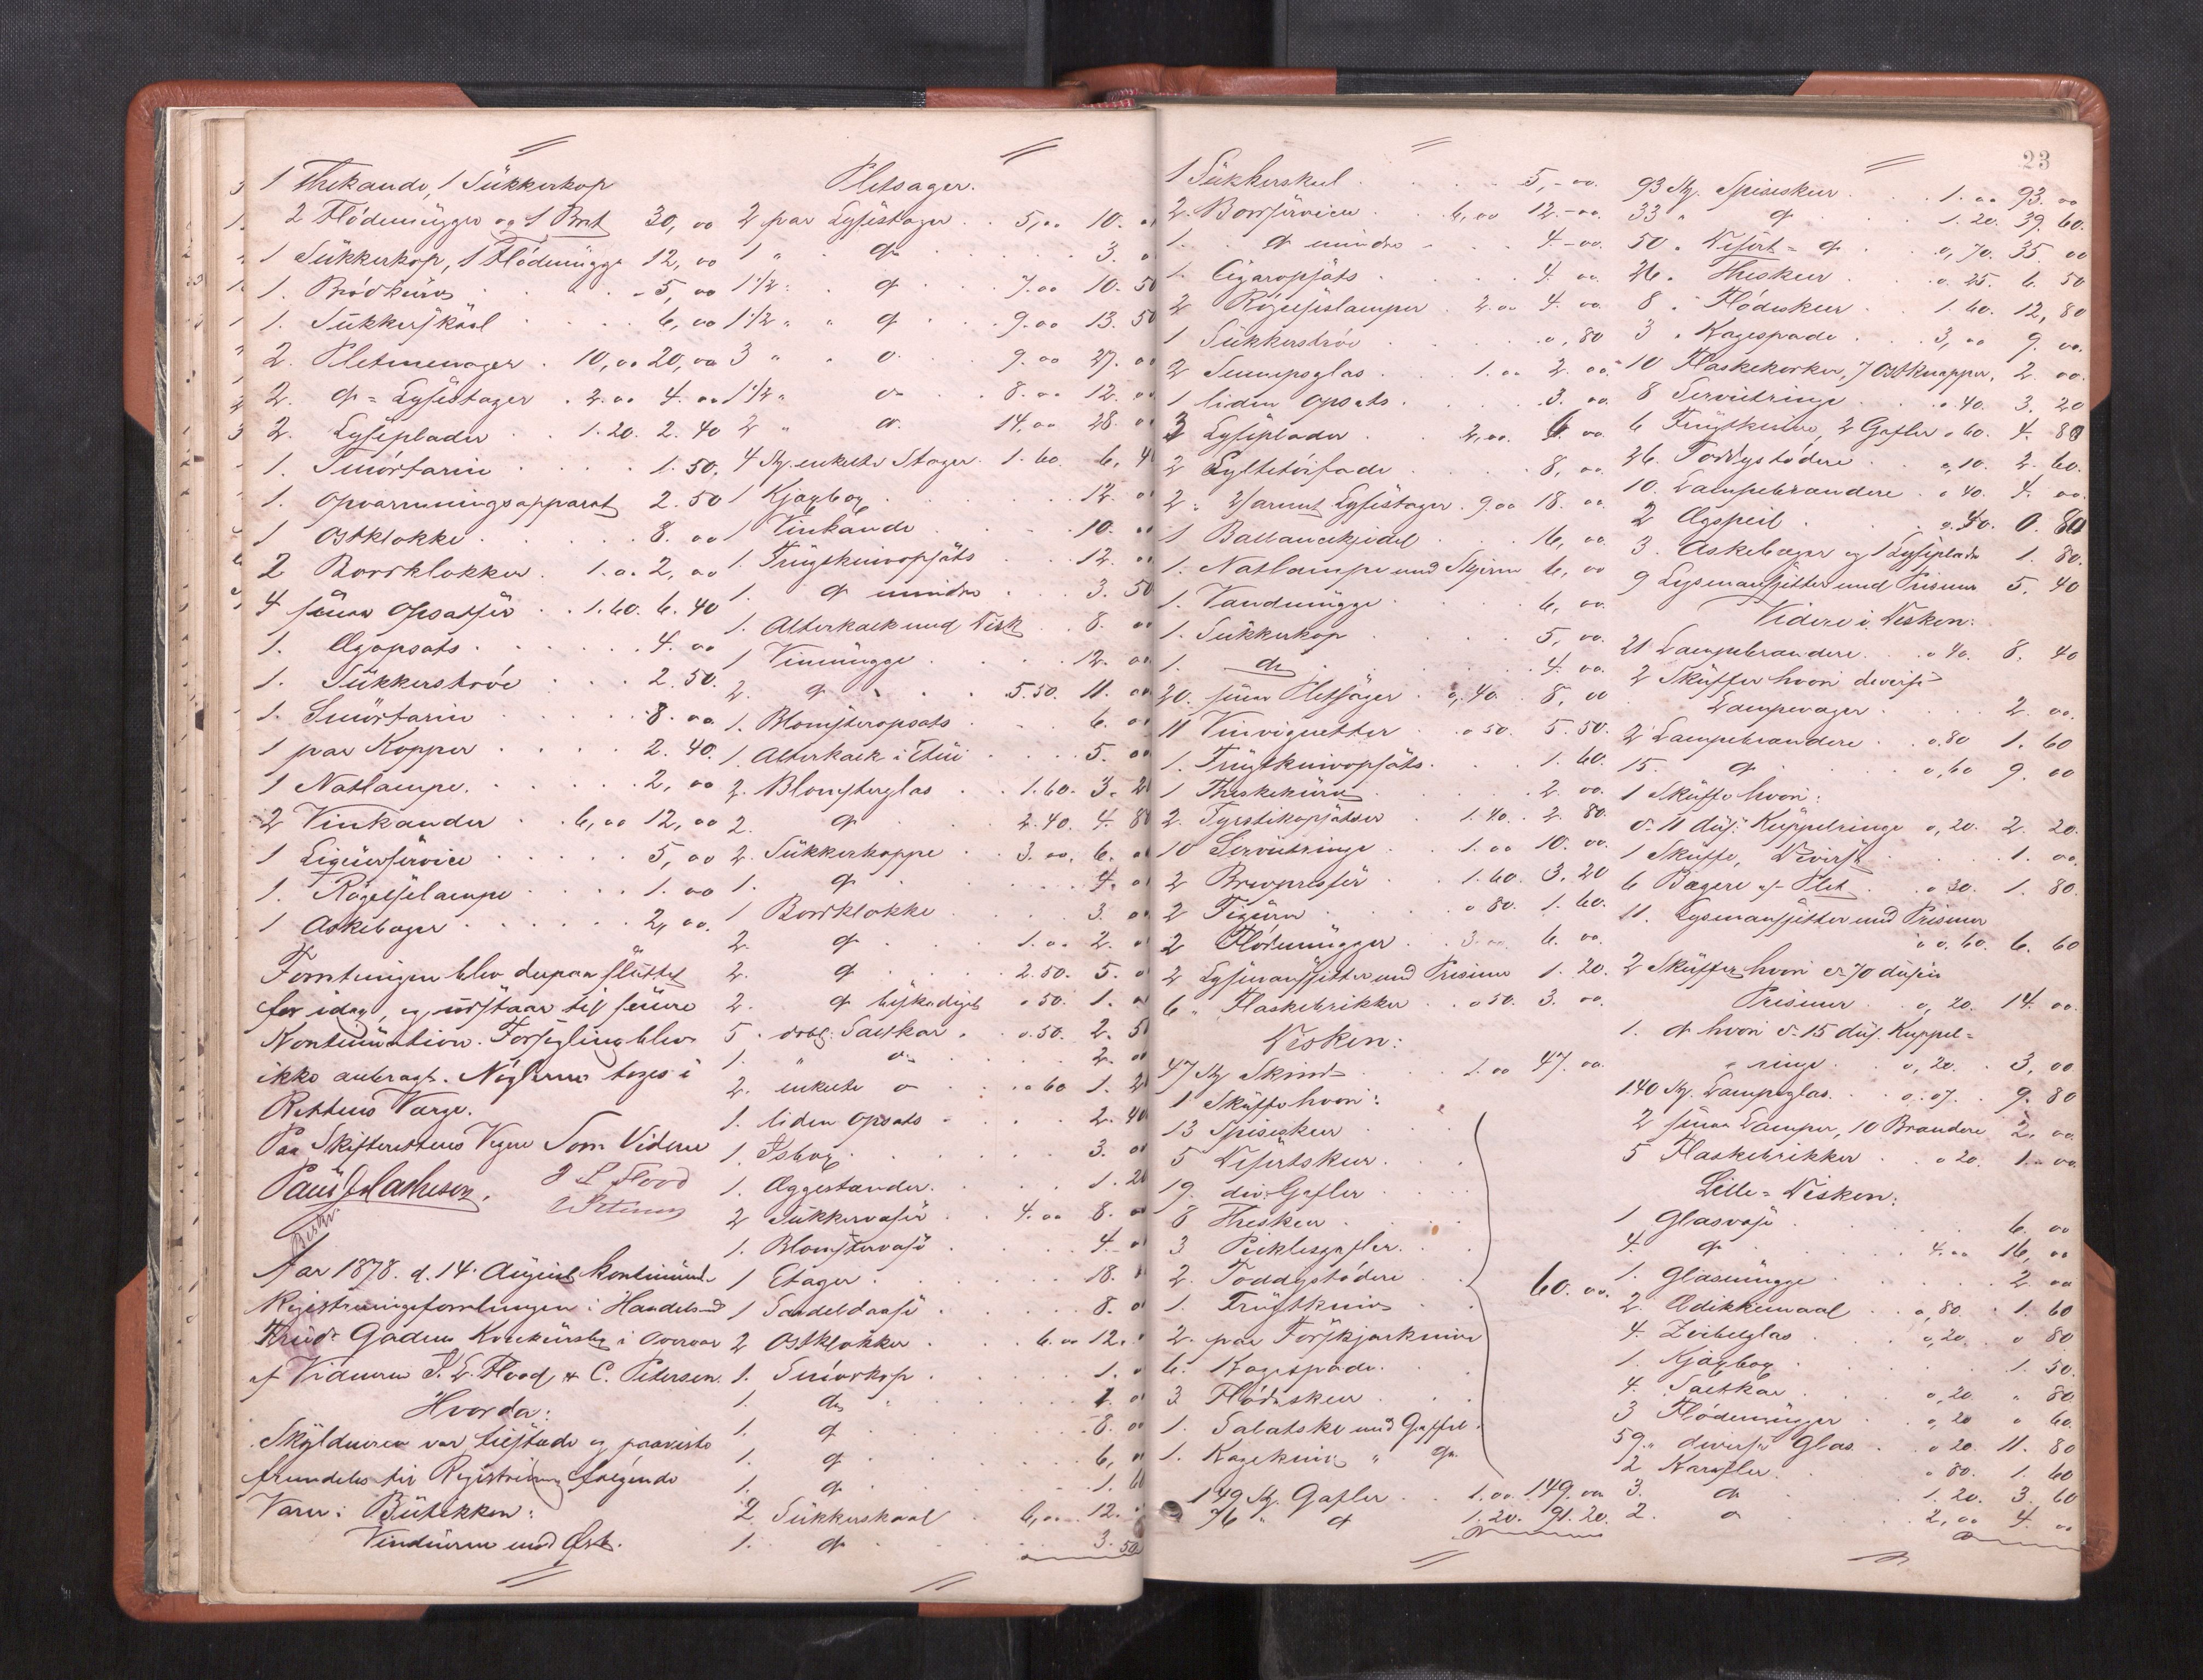 1 Thekande, 1 Sukkerkop
2 Flödemugge og 1 Bret 30, 00
1 Sukkerkop, 1 Flödemugge 12, 00
1. Brödkurv 5, 00
1. Sukkerskaal 6, 00
2. Pletmenager 10,00 20,00
2. do = Lysestager 2.00 4.00
2. Lyseplader 1.20. 2.40
1. Smörtarin 1.50.
1. Opvarmningsapparat 2.50
1 Ostklokke 8.00
2 Bordklokker 1.00 2,00
4 smaa Opsatser 1.60. 6.40
1. Ægopsats 4.00
1. Sukkerströe 2.50.
1. Smörtarin 8.00
1 par Kopper 2.40.
1 Natlampe. 2,00
2 Vinkander 6,00 12,00
1 Liqeurservice 5,00
1. Rögelselampe 1.00
1 Askebæger 2,00.
Forretningen blev derpaa sluttet
for idag, og udstaar til senere
Kontinuation. Forsegling blev
ikke anbragt. Nøglerne tages i
Rettens Værge.
Paa Skifterettens Vegne Som Vidner
Paul Mathesen. J L Flood
C Petersen
Aar 1878. d. 14. August kontinuerede
Registreringsforretningen i Handelsmd
Trud Gadens Konkursbo i Overvær
af Vidnerne J. L. Flood & C. Petersen.
Hvorda:
Skyldneren var tilstede og paaviste
fremdeles til Registrering følgende
Varer: Butikken:
Vinduerne mod Øst.
Pletsager.
2 par Lysestager 5,00 10.
1 " do 3.
1 1/2 " do 7.00 10.50
1 1/2 " " do 9.00 13.50
3 " " do 9.00 27.00
1 1/2 " do 8.00 12.00
2 " do 14,00 28.
4 St. enkelte Stager 1.60. 6,4
1 Kjæxbox 12.
1 Vinkande 10.
1. Frugtknivopsats 12.
1. do mindre 3.50
1. Alterkalk med Disk 8.00
1 Vinmugge 12.00
2. do 5.50. 11.00
1. Blomsteropsats 6.
1. Alterkalk i Etui 5.
2. Blomsterglas 1.60. 3.2
2. do 2.40. 4.80
2. Sukkerkoppe 3.00. 6.
1. do 4.
1 Bordklokke 3.
2. do 1.00 2.
2. do 2.50. 5.
2. do beskadiget 0.50. 1.
5. dobb: Saltkar. 0.50. 2.5
1. " do 2.00
2. enkelte do 0.60 1.2
1. liden Opsats 2.40
1. Isbox 3.00
1. Æggestander 1.20
2 Sukkervaser 4.00 8.
1. Blomstervase 4.
1 Etager 18.
1 Sandeldaase 8.
2 Ostklokker 6.00 12.
1. Smörkop 1.
1. do 1.
1. do 8.00
1. do 6,
1. do 1.60
2. Sukkerskaal 6,00 12.
1. do 3.50
23
1 Sukkerskeel 5,-00.
2. Bordservicer 6,00 12.-00.
1. do mindre 4.-00.
1. Cigaropsats 4.00
2 Rögelselamper 2.00 4.00.
1 Sukkerströe 0,80
2 Sennepsglas 1.00 2.00
1 liden Opsats 3.00.
3 Lyseplader 2,00. 6.00
2 Syltetöifade 8,00
2: 2/armet Lysestager 9.00 18.00
1 Ballancekjedel 16,00
1. Natlampe med Skjærm 6,00
1. Vandmugge 6,00.
1. Sukkerkop 5,00.
1. do 4.00.
20. smaa Pletsager 0,40. 8,00
11 Vinviguetter 0 50. 5.50.
1. Frugtknivopsats 1.60.
1 Theskekurv 2.00.
2. Fyrstikopsatser 1.40. 2.80.
10 Servietringe 1.00 10.00.
2 Brevpresser 1.60. 3.20
2 Figurer 0 80. 1.60.
2 Flödemugger 3.00 6.00.
2 Lysemanssjetter med Prismer 1.20.
6 " Flaskebrikker 0 50. 3.00.
Disken:
47 St Skeer 1.00 47.00.
1 Skuffe hvori:
13 Spiseskeer
5 Desertskeer
19. div: Gafler
8 Theskeer
3 Picklesgafler
2. Toddystödere
1. Frugtkniv
2. par Forskjærkniver
6. Kagespade.
3 Flödeskeer
1. Salatske med Gaffel.
1. Kagekniv " do
60.00.
149 St. Gafler 1.00. 149.00
76 " do 1.20. 91.20.
93 St. Spiseskeer 1.00 93.00
33 " do 1.20. 39.60.
50 " Desert = do 0,70. 35.00
26 " Theskeer 0.25. 6.50
8 " Flödeskeer 1.60. 12,80
3 " Kagespade 3,00 9.00.
10 Flaskekorker, 7 Ostknapper. 2.00.
8 Servietringe 0.40. 3.20
6 Frugtknive, 2 Gafler 0 60. 4.80
26. Toddystödere 0,10. 2.60.
10. Lampebrændere 0 40. 4.00.
2 Ægspeil 0.40. 0.80
3. Askebæger og 1 Lyseplade 1.80.
9 Lysemanssjetter med Prismer 5.40
Videre i Disken:
21 Lampebrændere 0 40. 8.40
2 Skuffer hvori diverse
Lampesager 2.00.
2 Lampebrændere 0.80 1.60
15. do 0,60 9.00
1 Skuffe hvori:
c. 11 dus: Kuppelringe 0,20. 2.20.
1 Skuffe, Diverse 1.00.
6 Bægere af Plet 0 30. 1.80.
11. Lysemanssjetter med Prismer
à 0.60. 6.60
2 Skuffer hvori c. 70 dusin
Prismer 0,20. 14.00.
1. do hvori c. 15 dus. Kuppel=
ringe 0,20. 3,00
140 St. Lampeglas 0.07. 9.80
2 smaa Lamper, 10 Brændere 2.00
5 Flaskebrikker 0 20. 1.00.
Lille = Disken:
1 Glasvase 6.00
4. do 4.00 16,00
1. Glasmugge 2.00
2. Ædikkemaal 0,80. 1.60
4. Zvibelglas 0,20. 0 80
1. Kjæxbox 1.50.
4. Saltkar 0,20 " 80
3 Flödemugger 0,20 0 60.
59. " diverse Glas 0 20. 11.80
2 Karafler 0 80. 1.60
3. do 1.20. 3.60
2. do 2,00 4.00